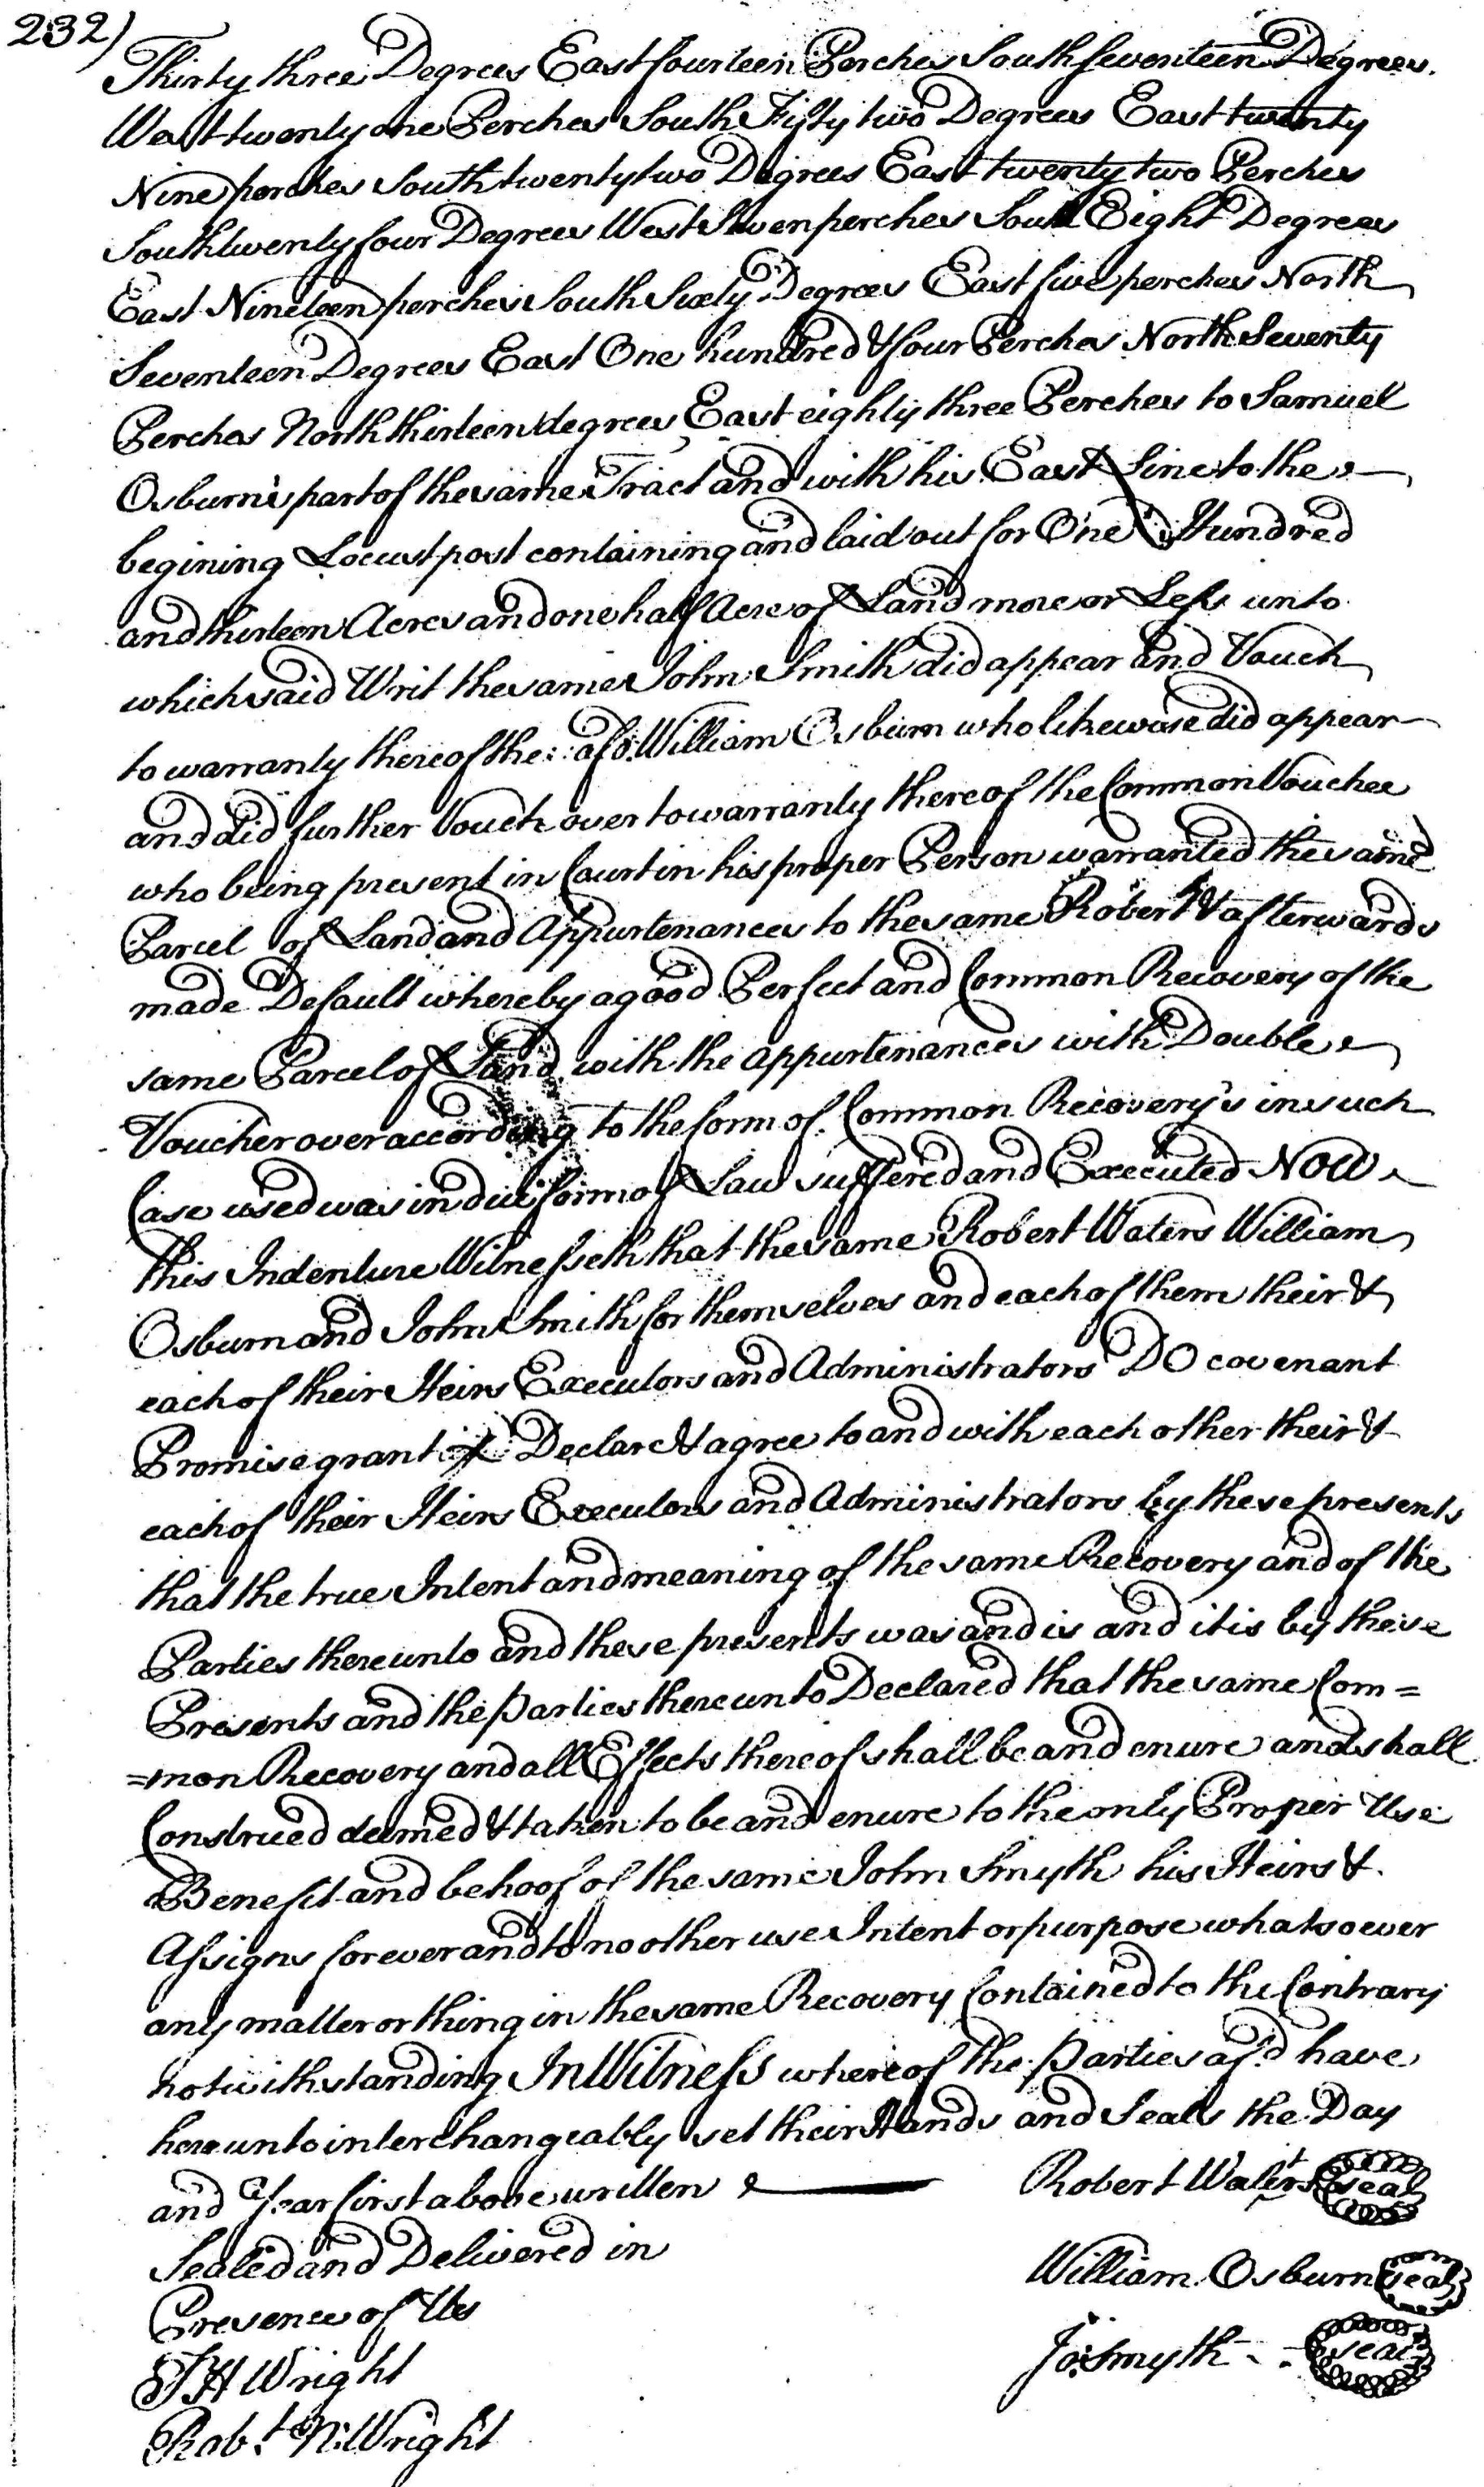 232)
Thirty three Degrees East fourteen Perches South Seventeen Degrees
West twenty one Perches South Fifty two Degrees East twenty
Nine perches South twenty two Degrees East twenty two Perches
South twenty four Degrees West Seven perches South Eight Degrees
East Nineteen perches South Sixty Degrees East five perches North
Seventeen Degrees East One hundred & four Perches North Seventy
Perches North thirteen degrees East eighty three Perches to Samuel
Osburn's part of the same Tract and with his East Line to the
begining Locust post containing and laid out for One Hundred
and thirteen Acres and one half Acre of Land more or Less unto
which said Writ the same John Smith did appear and Vouch
to warranty thereof the afsd. William Osburn who likewise did appear
and did further Vouch over to warranty thereof the Common Vouchee
who being present in Court in his proper Person warranted the same
Parcel of Land and Appurtenances to the same Robert & afterwards
made Default whereby a good Perfect and Common Recovery of the
same Parcel of Land with the appurtenances with Double
Voucher over according to the form of Common Recovery's in such
Case used was in due form of Law suffered and Executed NOW
this Indenture Witnesseth that the same Robert Waters William
Osburn and John Smith for themselves and each of them their &
each of their Heirs Executors and Administrators DO covenant
Promise grant Declare & agree to and with each other their &
each of their Heirs Executors and Administrators by these presents
that the true Intent and meaning of the same Recovery and of the
Parties thereunto and these presents was and is and it is by these
Presents and the parties thereunto Declared that the same Com=
=mon Recovery and all Effects thereof shall be and enure and shall
Construed deemed & taken to be and enure to the only Proper Use
Benefit and behoof of the same John Smyth his Heirs &
Assigns forever and to no other use Intent or purpose whatsoever
any matter or thing in the same Recovery Contained to the Contrary
notwithstanding In Witness whereof the Parties afsd have
hereunto interchangeably set their Hands and Seals the Day
and Year first above written
Robert Waters seal
Sealed and Delivered in
William Osburn seal
Presence of Us
Jo: Smyth seal
T H Wright
Robt. N: Wright